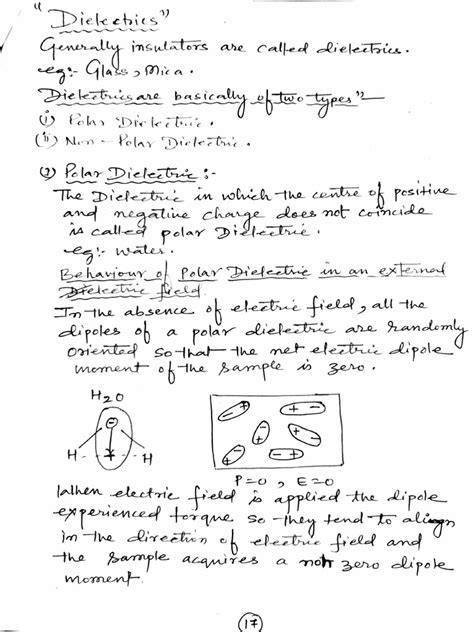 "Dielectrics"
Generally insulators are called dielectrics.
eg:- Glass, Mica.
Dielectrics are basically of two types"-
(i) Polar Dielectric.
(ii) Non-Polar Dielectric.
(1) Polar Dielectric :-
The Dielectric in which the centre of positive
and negative charge does not coincide
is called polar Dielectric.
eg:- Water.
Behaviour of Polar Dielectric in an external
electric field.
In the absence of electric field, all the
dipoles of a polar dielectric are randomly
oriented so that the net electric dipole
moment of the sample is zero.
H2O
H H
P=0, E=0
When electric field is applied the dipole
experienced torque so they tend to align
in the direction of electric field and
the sample acquires a non zero dipole
moment.
17